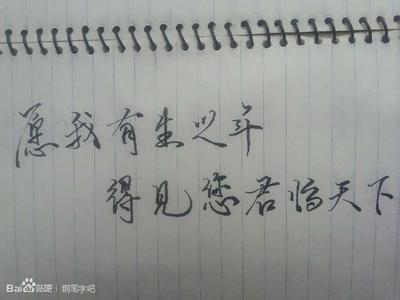 愿我有生之年
得见您君临天下
Bai贴吧 | 钢笔字吧